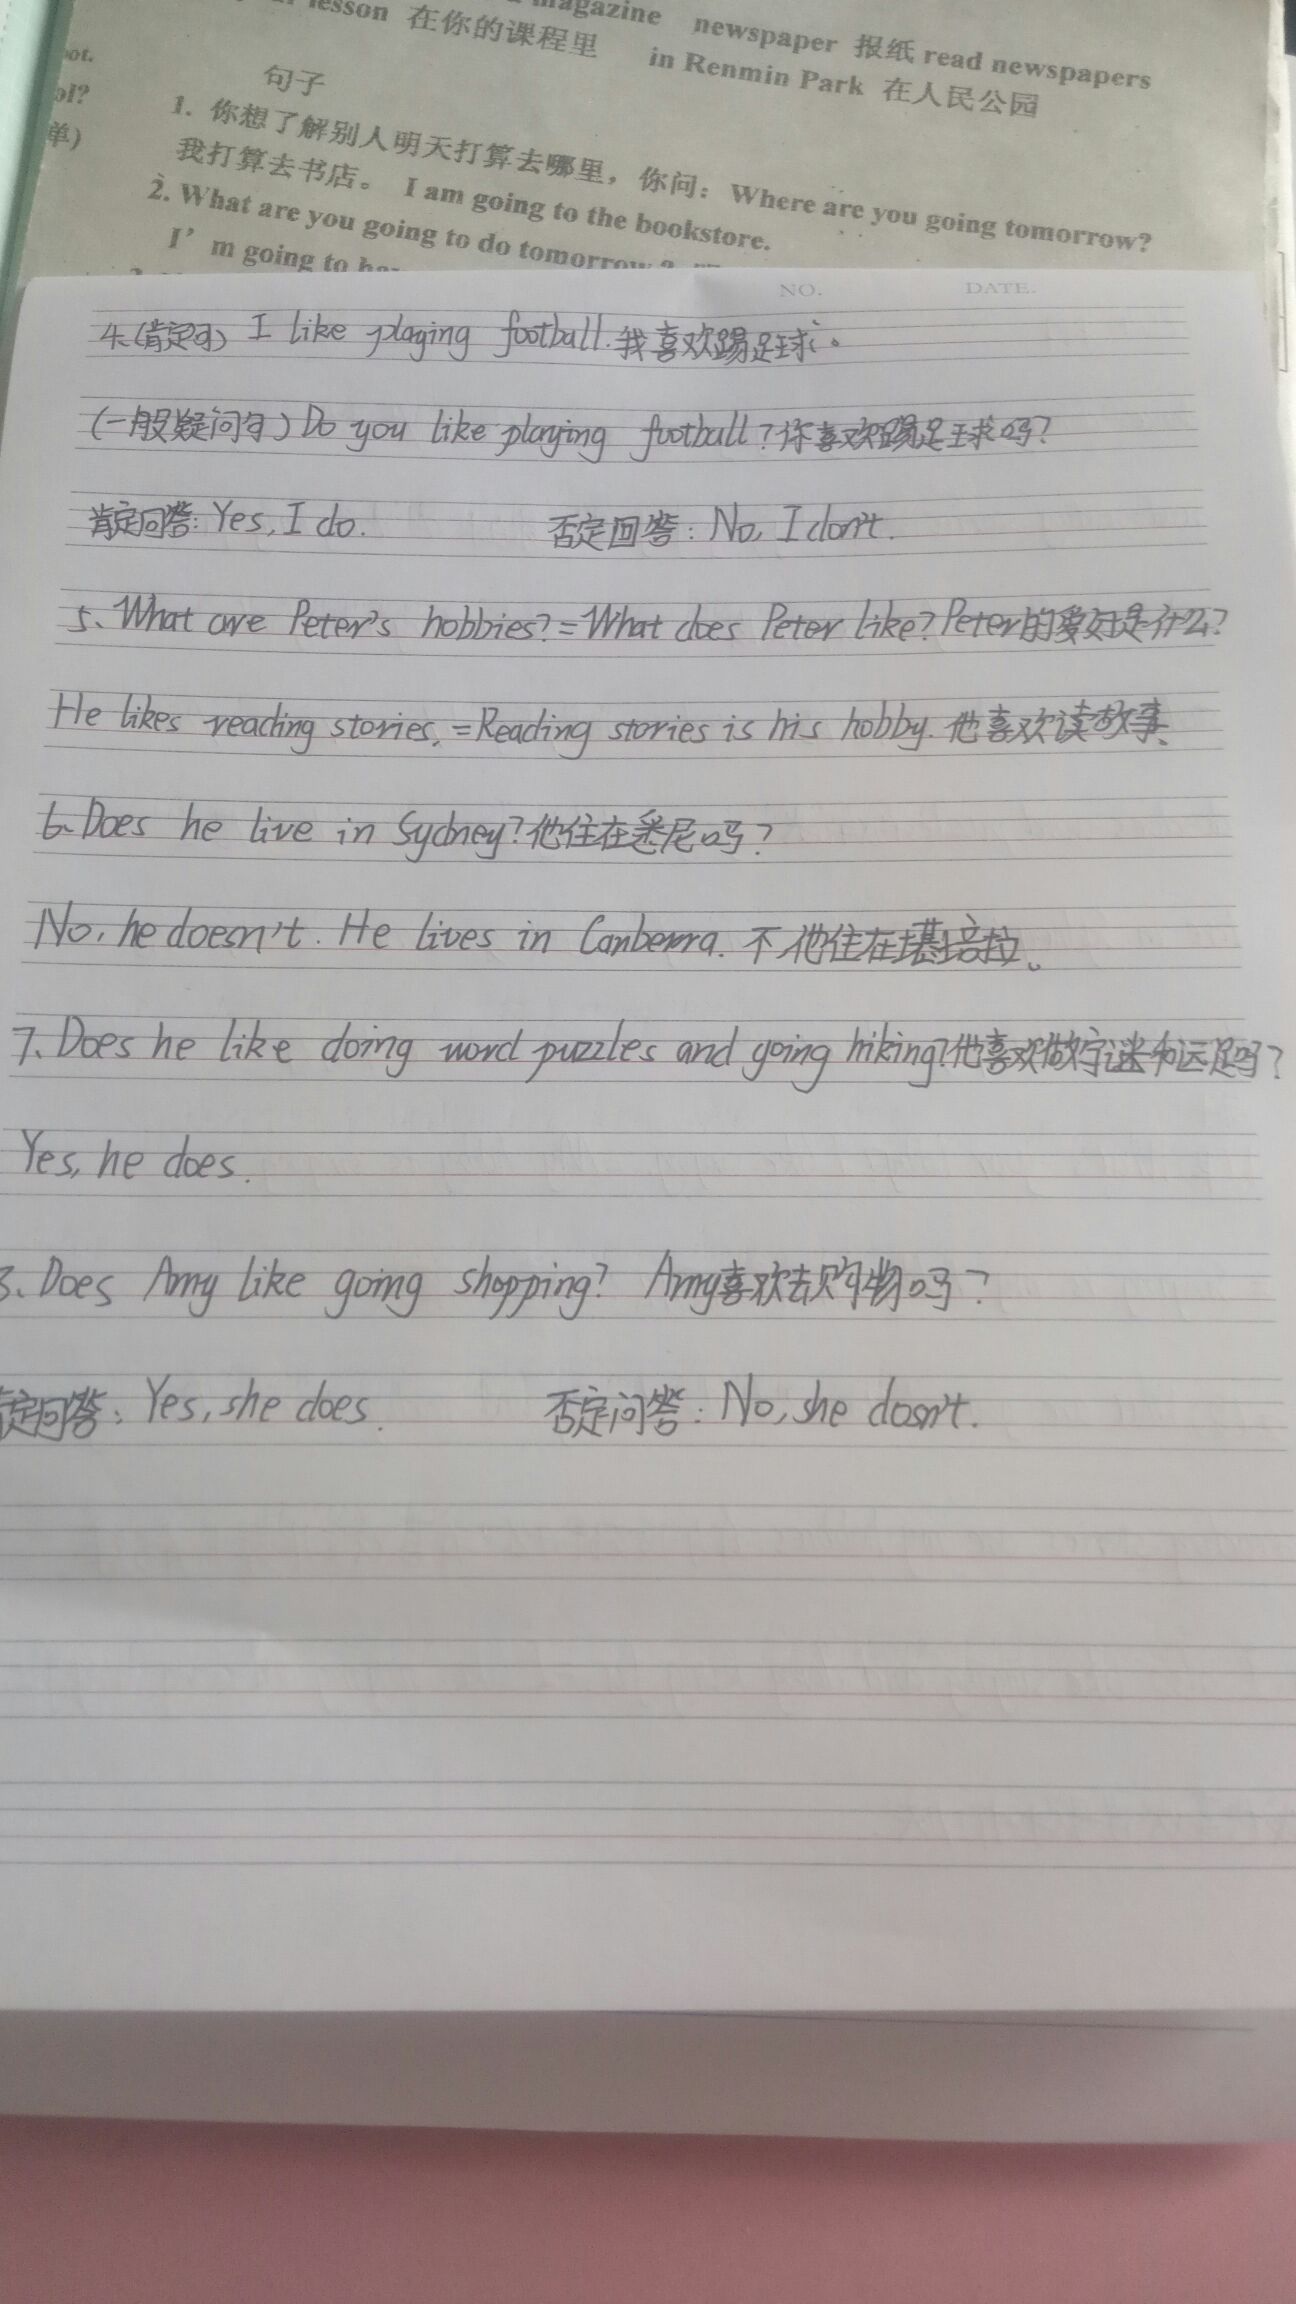 lesson 在你的课程里 magazine newspaper 报纸 read newspapers
in Renmin Park 在人民公园
句子
1. 你想了解别人明天打算去哪里，你问：Where are you going tomorrow?
我打算去书店。 I am going to the bookstore.
2. What are you going to do tomorrow?
I'm going to
oot.
ol?
单)
NO. DATE.
4.(肯定句) I like playing football.我喜欢踢足球。
(一般疑问句)Do you like playing football?你喜欢踢足球吗?
肯定回答: Yes, I do. 否定回答: No, I don't.
5、What are Peter's hobbies?=What does Peter like?Peter的爱好是什么?
He likes reading stories.=Reading stories is his hobby.他喜欢读故事、
6、Does he live in Sydney?他住在悉尼吗?
No, he doesn't. He lives in Canberra. 不,他住在堪培拉。
7、Does he like doing word puzzles and going hiking?他喜欢做字谜和远足吗?
Yes, he does.
8、Does Amy like going shopping? Amy喜欢去购物吗?
肯定回答: Yes, she does. 否定问答: No, she dosn't.